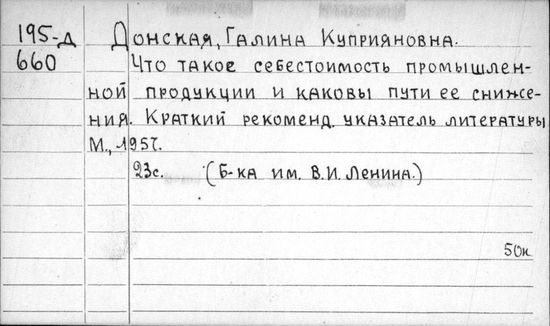 195-д Донская, Галина Куприяновна.
660 Что такое себестоимость промышлен-
ной продукции и каковы пути ее сниже-
ния. Краткий рекоменд. указатель литературы
М., 1957.
23с. (Б-ка им. В.И. Ленина.)
50к